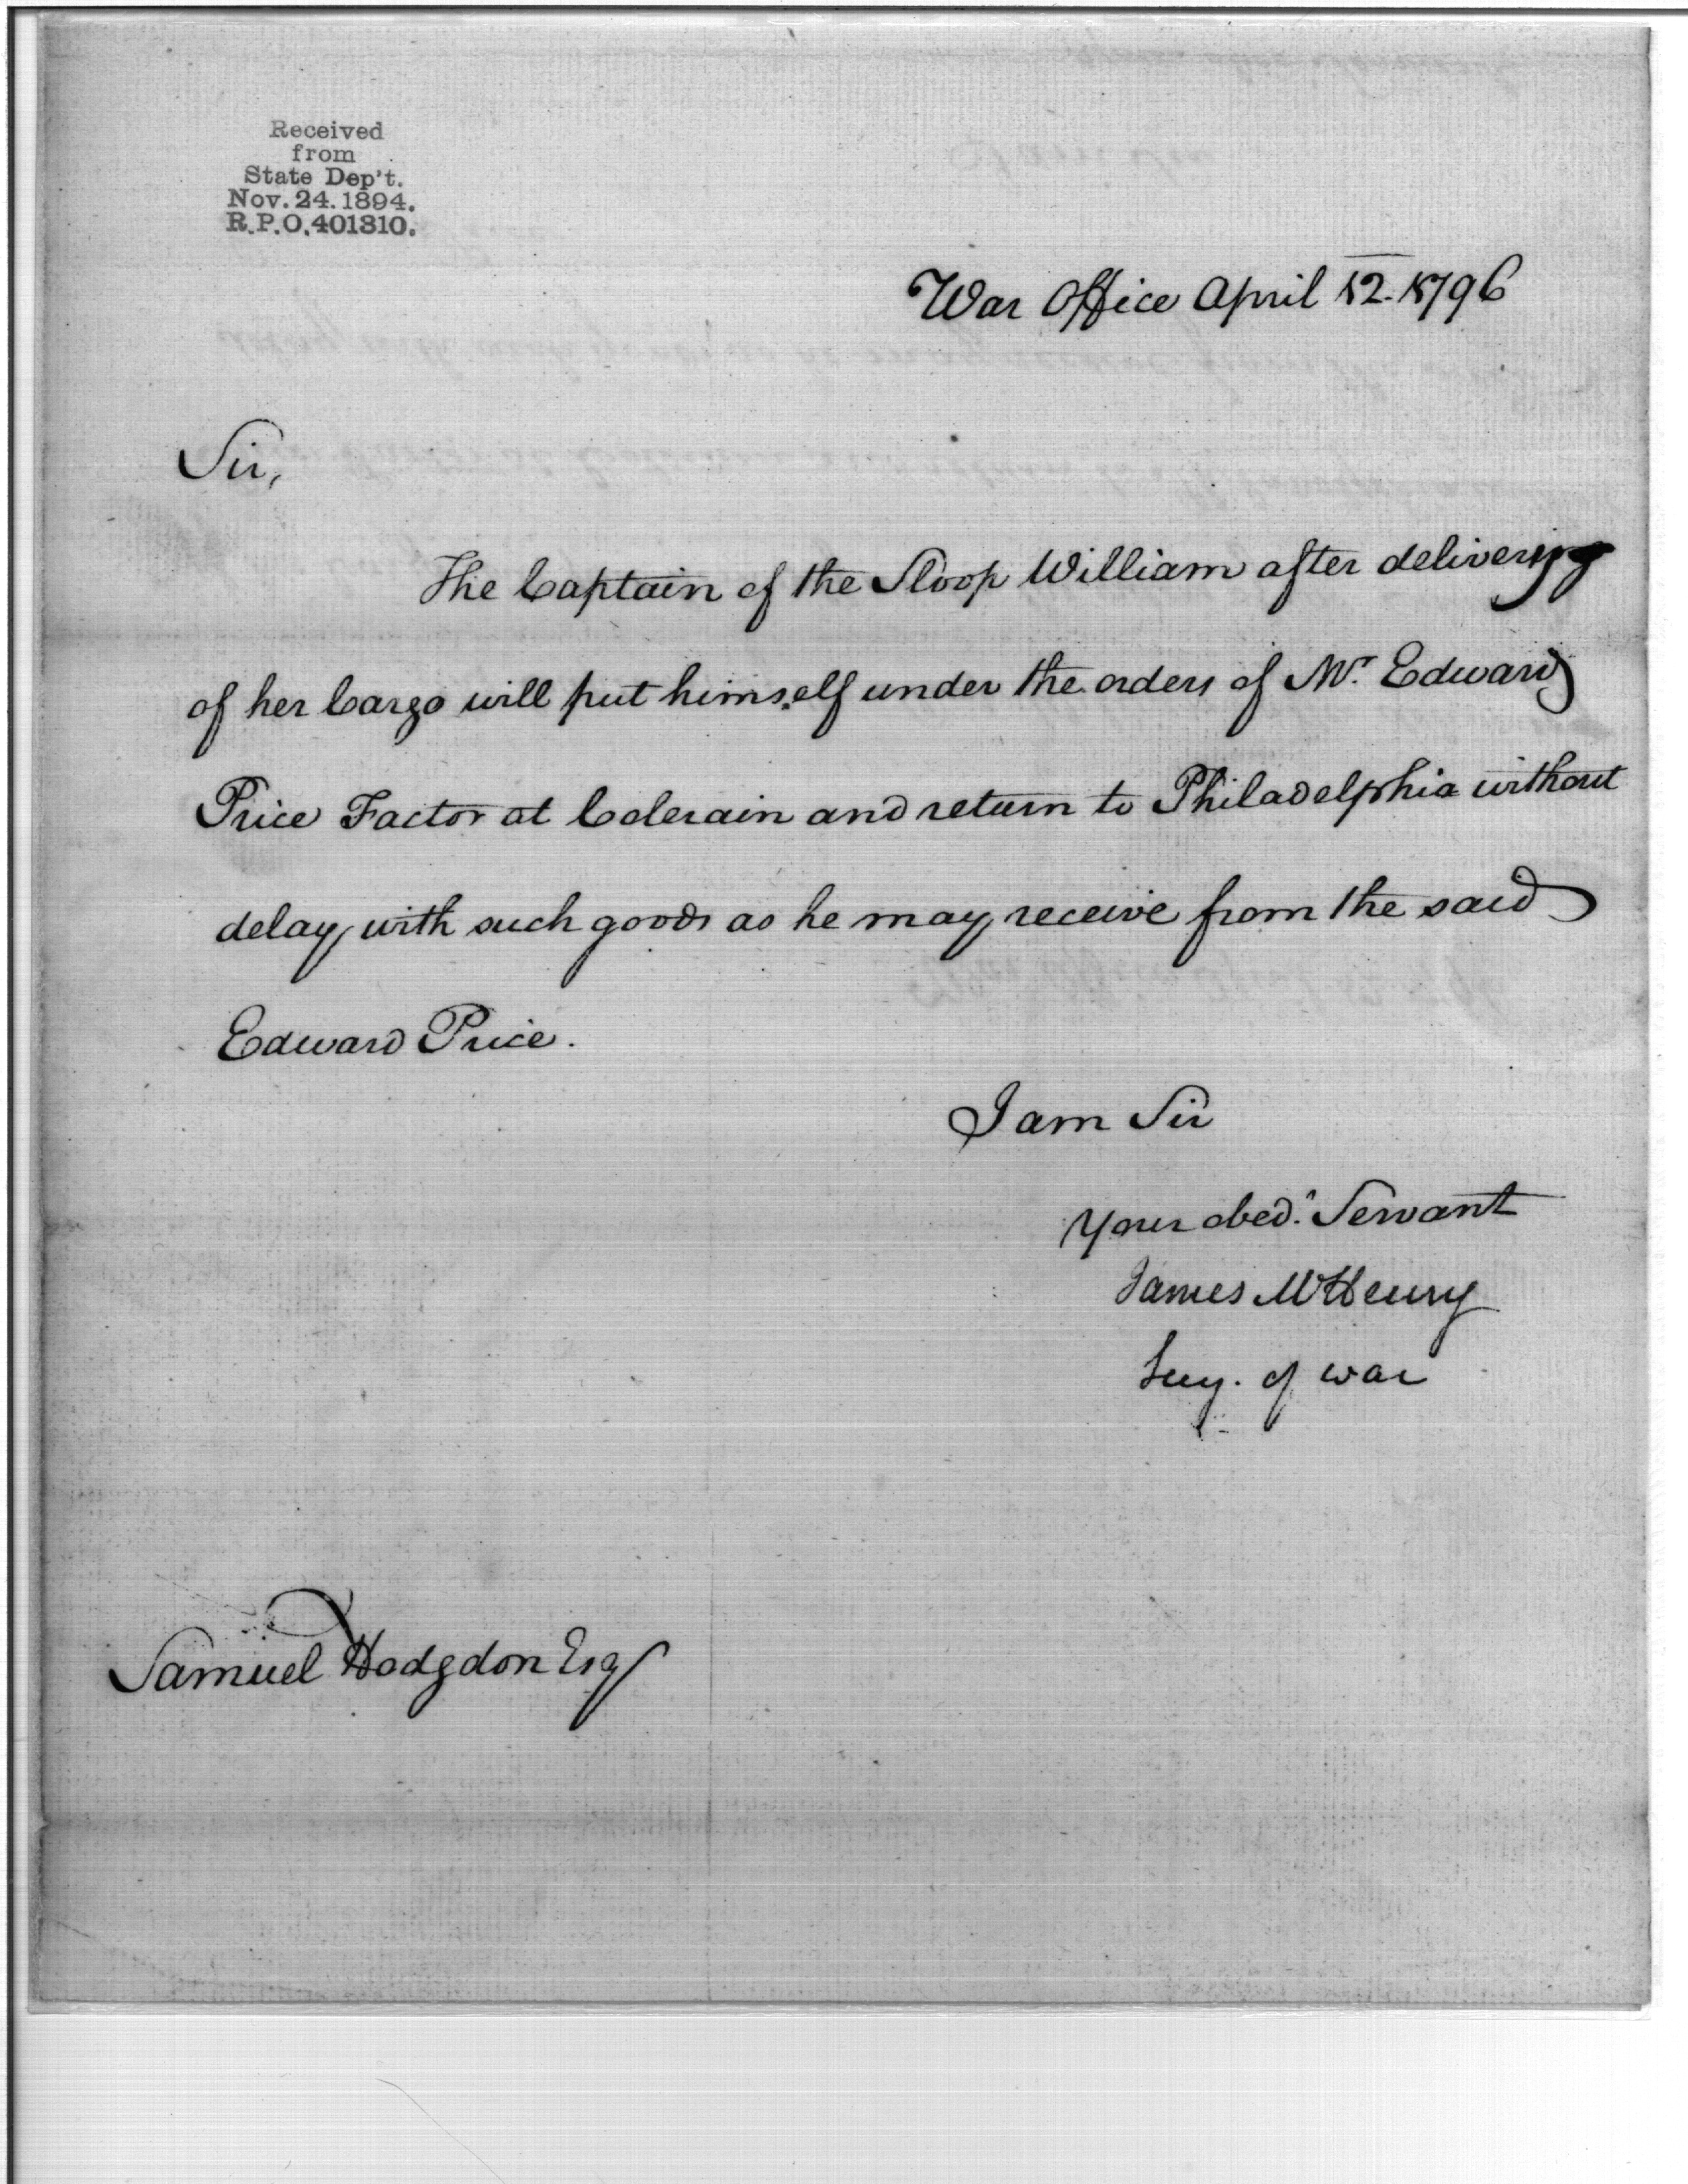 Received
from
State Dep't.
Nov. 24. 1894.
R.P.O. 401310.
War Office April 12. 1796
Sir,
The Captain of the Sloop William after delivering
of her Cargo will put himself under the orders of Mr. Edward
Price Factor at Colerain and return to Philadelphia without
delay, with such goods as he may receive from the said
Edward Price.
I am Sir
Your obed.t Servant
James McHenry
Secy. of war
Samuel Hodgdon Esq